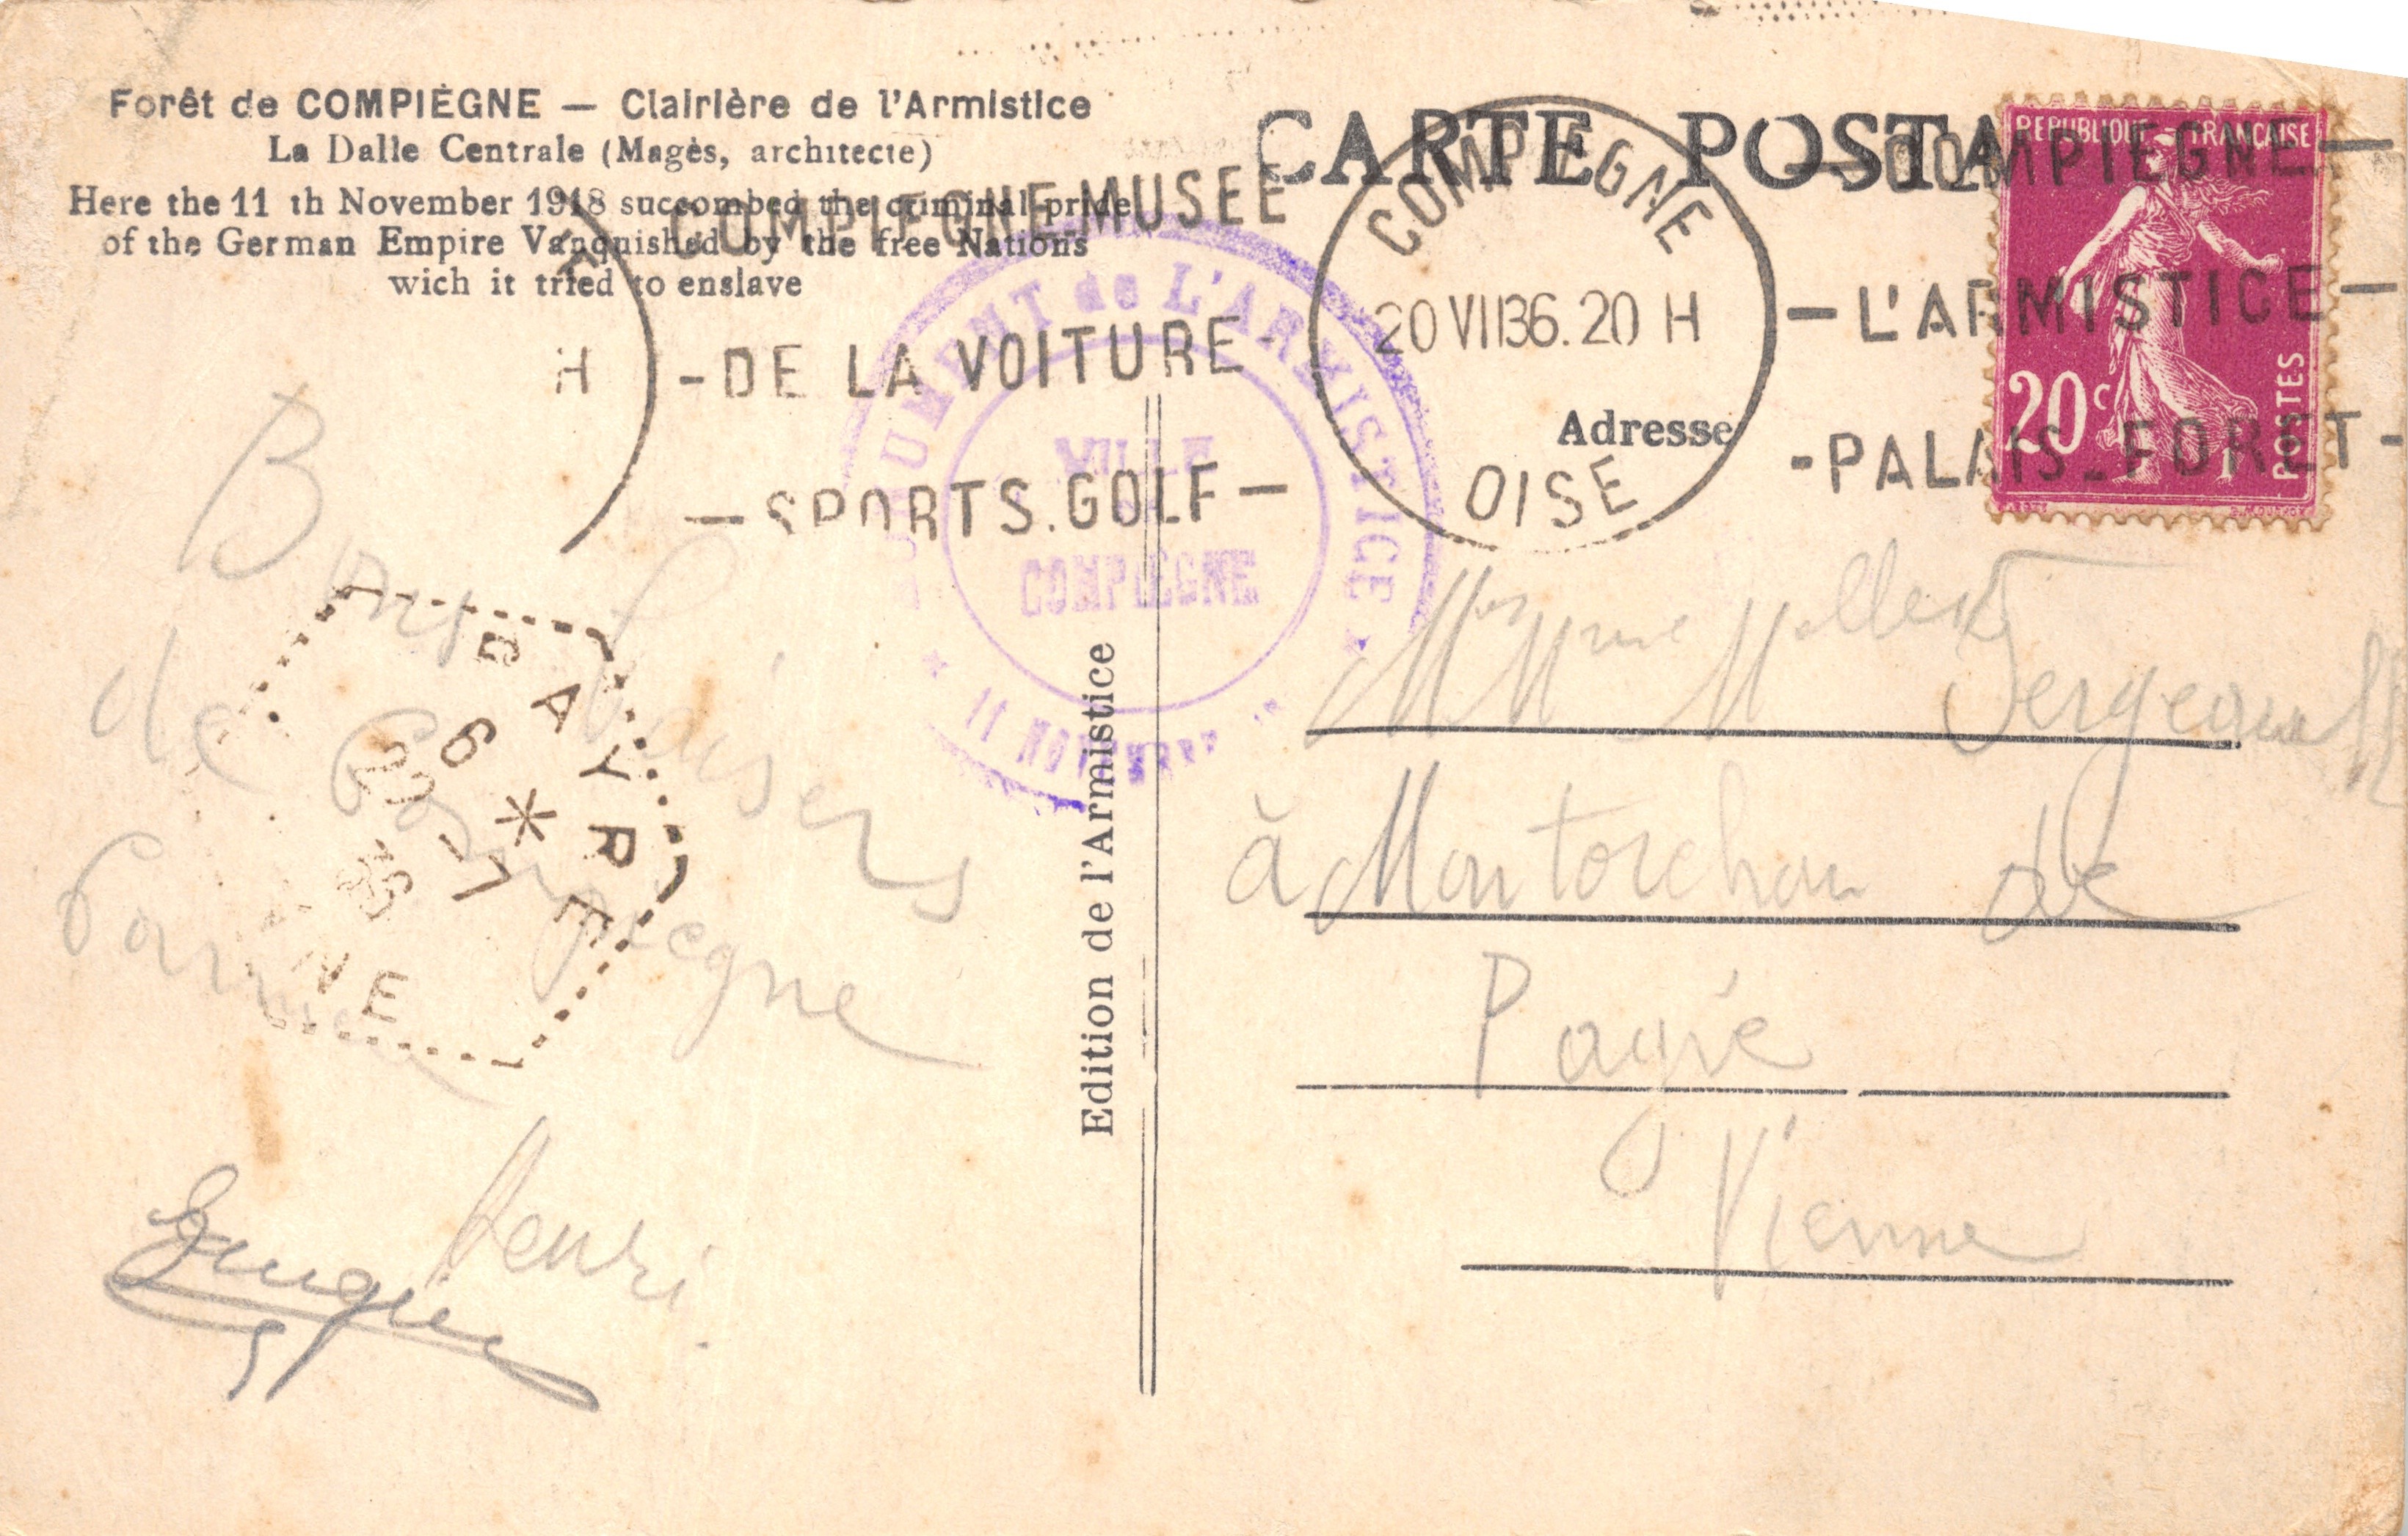 Forêt de COMPIÈGNE — Clairière de l'Armistice
La Dalle Centrale (Magès, architecte)
Here the 11 th November 1918 succombed the criminal pride
of the German Empire Vanquished by the free Nations
wich it tried to enslave
CARTE POSTA
COMPIEGNE
20 VII 36. 20 H
OISE
COMPIEGNE-MUSEE
H
-DE LA VOITURE-
-SPORTS.GOLF-
-COMPIEGNE-
-L'ARMISTICE-
-PALAIS-FORET-
REPUBLIQUE - FRANÇAISE
20c
POSTES
MONUMENT de L'ARMISTICE
VILLE
COMPIEGNE
* 11 NOVEMBRE
Adresse
Edition de l'Armistice
Bons baisers
de Compiegne
Henri
PAYRE
*
à Montorchon de
Payré
Vienne